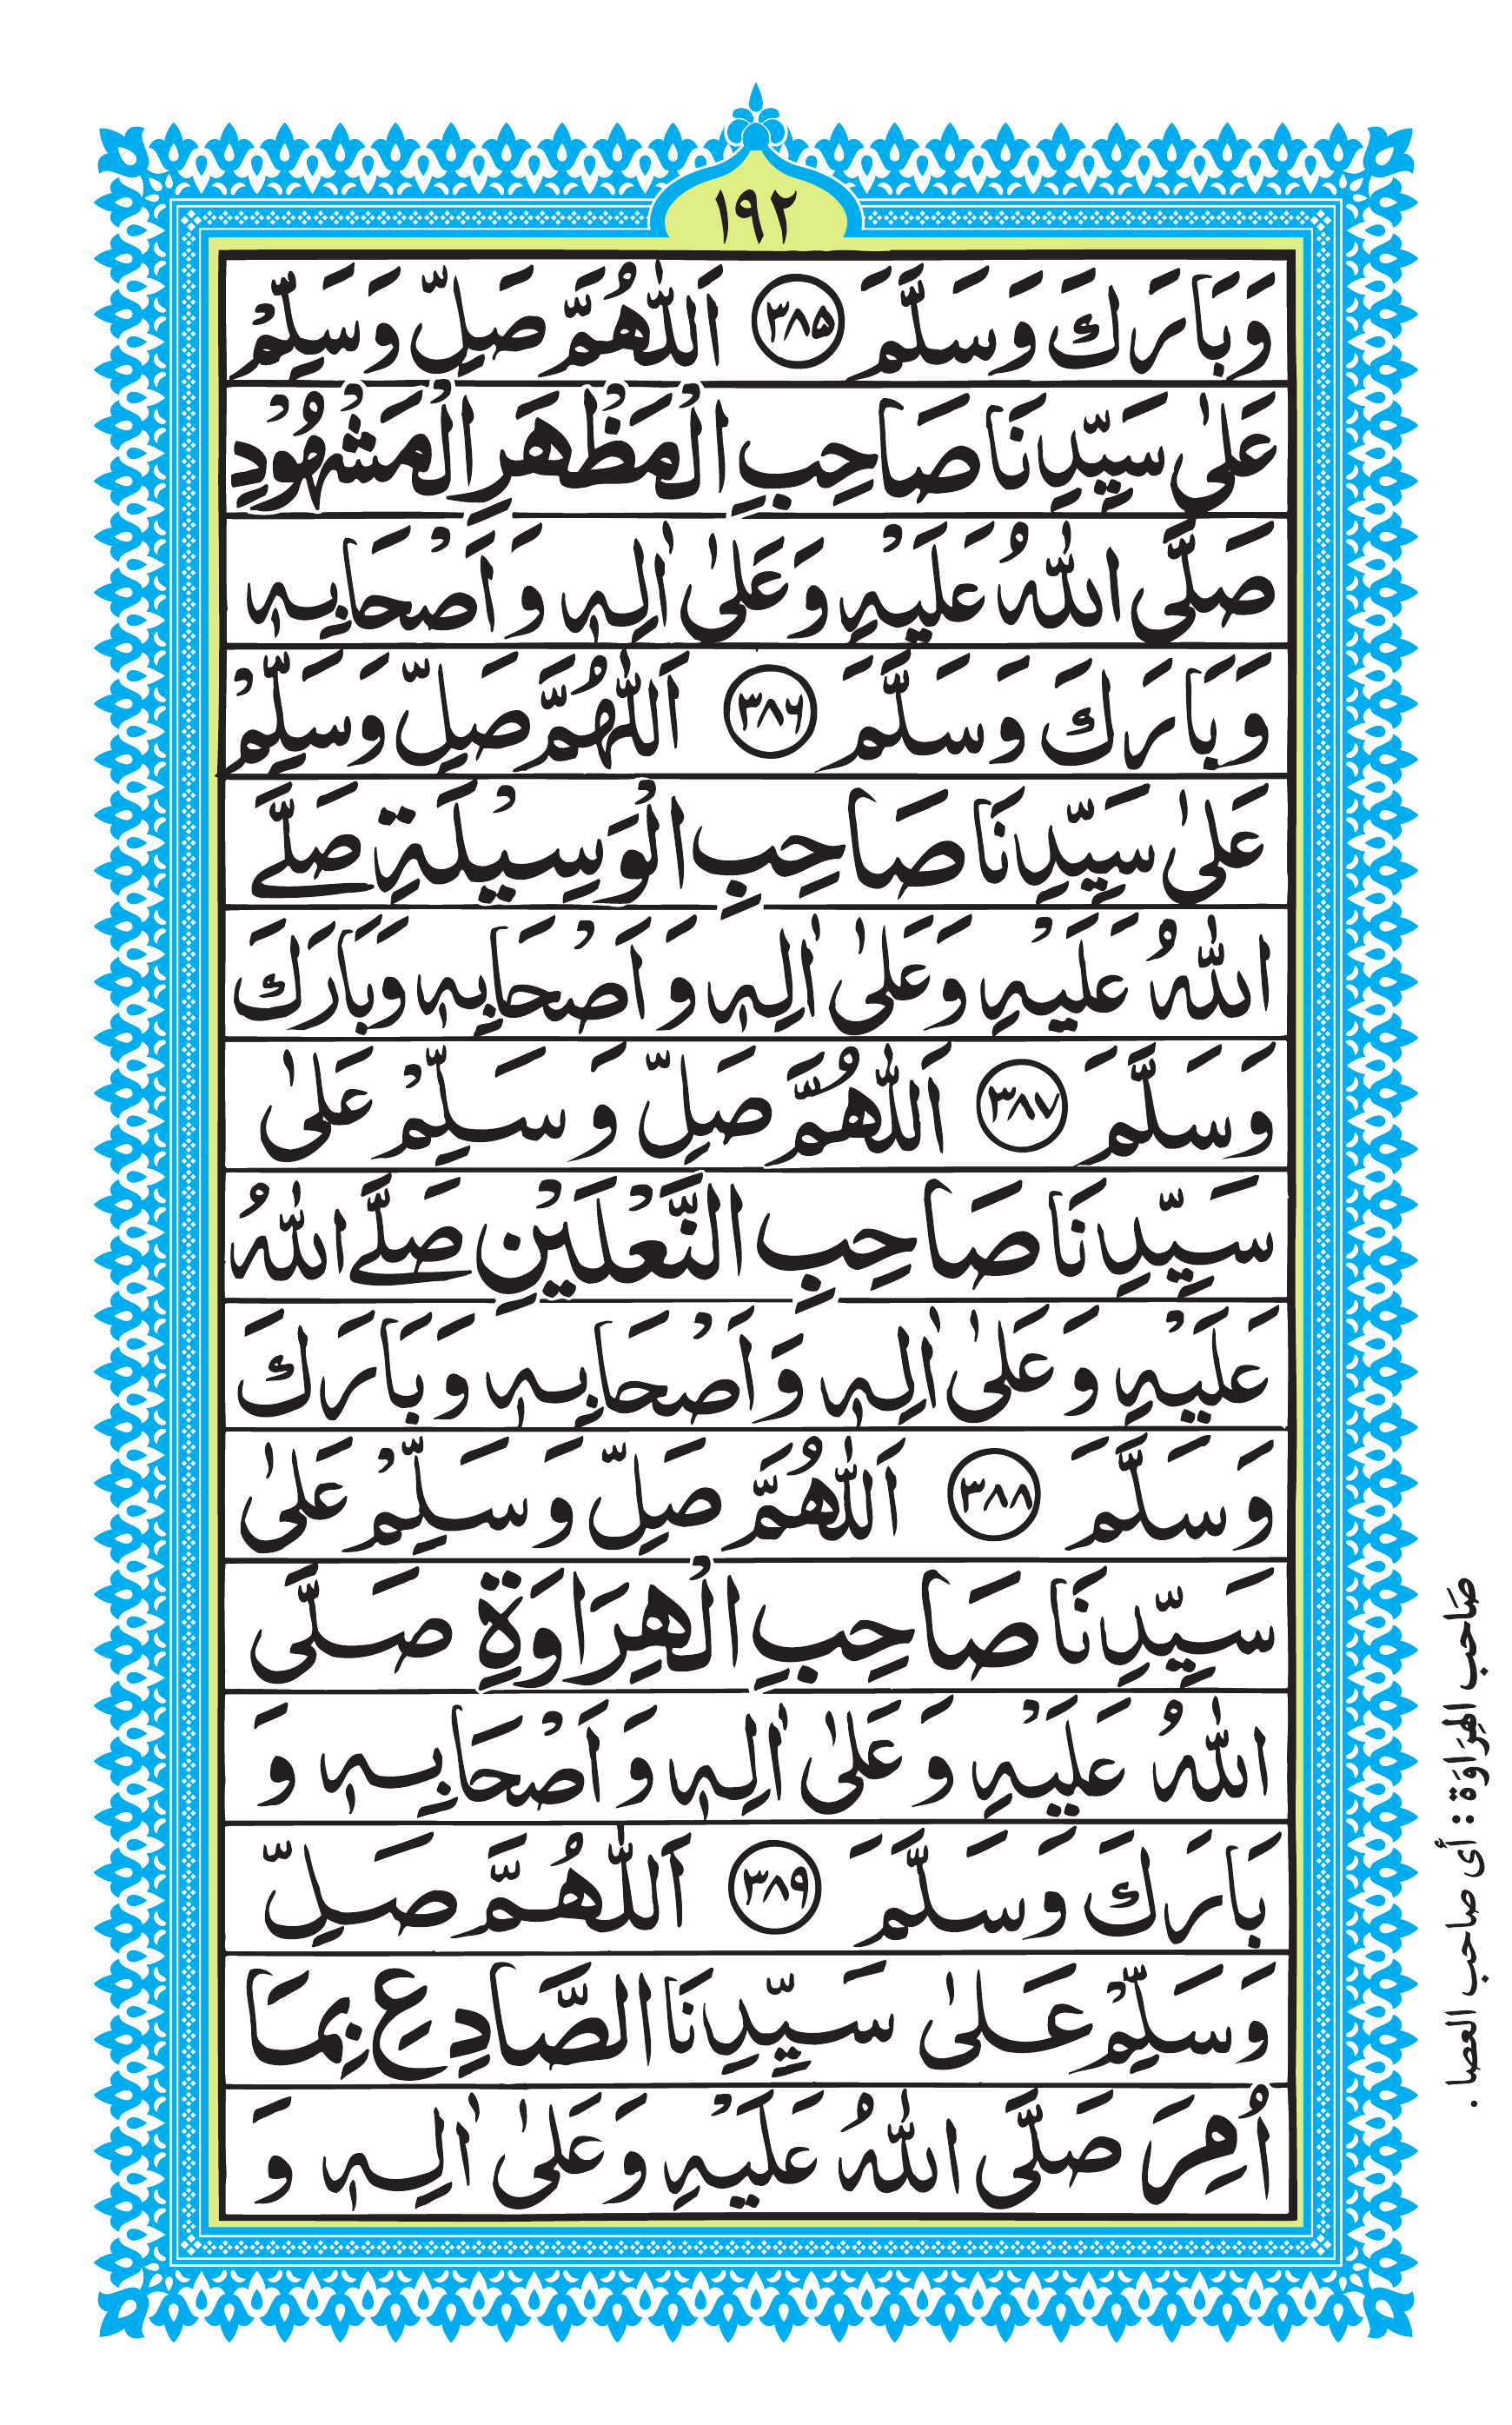 ١٩٢
وَبَارَكَ وَسَلَّمَ ٣٨٥ اَللّٰهُمَّ صَلِّ وَسَلِّمْ
عَلٰى سَيِّدِنَا صَاحِبِ الْمَظْهَرِ الْمَشْهُوْدِ
صَلَّى اللّٰهُ عَلَيْهِ وَعَلٰى اٰلِهٖ وَ اَصْحَابِهٖ
وَبَارَكَ وَسَلَّمَ ٣٨٦ اَللّٰهُمَّ صَلِّ وَسَلِّمْ
عَلٰى سَيِّدِنَا صَاحِبِ الْوَسِيْلَةِ صَلَّے
اللّٰهُ عَلَيْهِ وَعَلٰى اٰلِهٖ وَ اَصْحَابِهٖ وَبَارَكَ
وَسَلَّمَ ٣٨٧ اَللّٰهُمَّ صَلِّ وَسَلِّمْ عَلٰى
سَيِّدِنَا صَاحِبِ النَّعْلَيْنِ صَلَّے اللّٰهُ
عَلَيْهِ وَعَلٰى اٰلِهٖ وَ اَصْحَابِهٖ وَبَارَكَ
وَسَلَّمَ ٣٨٨ اَللّٰهُمَّ صَلِّ وَسَلِّمْ عَلٰى
سَيِّدِنَا صَاحِبِ الْهِرَاوَةِ صَلَّى
اللّٰهُ عَلَيْهِ وَعَلٰى اٰلِهٖ وَ اَصْحَابِهٖ وَ
بَارَكَ وَسَلَّمَ ٣٨٩ اَللّٰهُمَّ صَلِّ
وَسَلِّمْ عَلٰى سَيِّدِنَا الصَّادِعِ بِمَا
اُمِرَ صَلَّى اللّٰهُ عَلَيْهِ وَعَلٰى اٰلِهٖ وَ
صَاحب الهِرَاوَة : أى صاحب العصا .